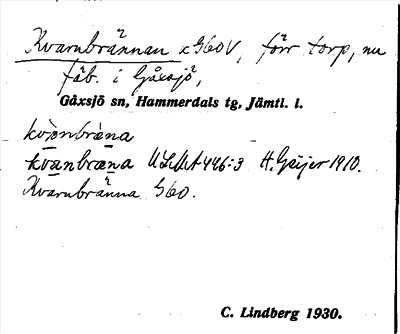 Kvarnbrännan x G60V, förr torp, nu
fäb. i Gåxsjö,
Gåxsjö sn, Hammerdals tg, Jämtl. l.
kvanbræna ULMA 446:3 H. Geijer 1910.
Kvarnbränna G60.
C. Lindberg 1930.